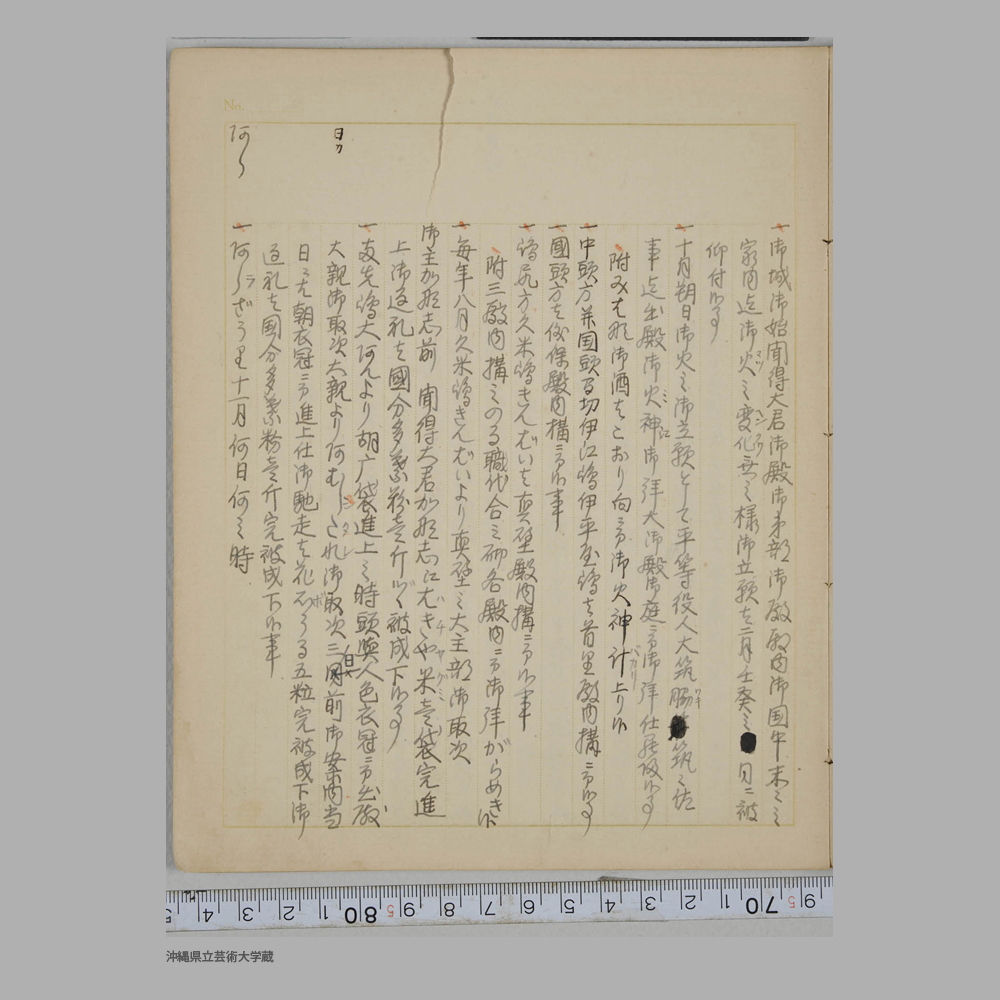 No.
一御城御始聞得大君御殿御末部御殿殿内御国中末々ミ
家内迄御火之変化無之様御立願を二月壬癸之 日ニ被
マツ
ヘンクワ
仰付候事
一十月朔日御火之御立願として平等役人大筑脇 筑之佐
ワキ
事迄出殿御火神御拝大御殿御庭ニ而御拝仕罷帰候事
附みはな御酒をこおり向ニ而御火神計上り候
バカリ
一中頭方并国頭間切伊江嶋伊平屋嶋を首里殿内構ニ而候事
一國頭方を儀保殿内構ニ而候事
一嶋尻方久米嶋きんじいを真壁殿内構ニ而候事
附三殿内構之のろ職代合之砌各殿内ニ而御拝がらめき候
一毎年八月久米嶋きんじいより真壁之大主部御取次
御主加那志前 聞得大君加那志江むきや米壱袋完進
チヤグミ
上御返礼を國分多葉粉壱斤ツヽ被成下候事
一友先嶋大阿んより胡广袋進上之時頭與人色衣冠ニ而出殿
大親御取次大親より阿むしられ御取次三日前御案内当
日ヶ
日ニ者朝衣冠ニ而進上仕御馳走を花ぼうる五粒完被成下御
返礼を國分多葉粉壱斤完被成下候事
阿し
一阿しラざうり十一月何日何之時
沖縄県立芸術大学蔵